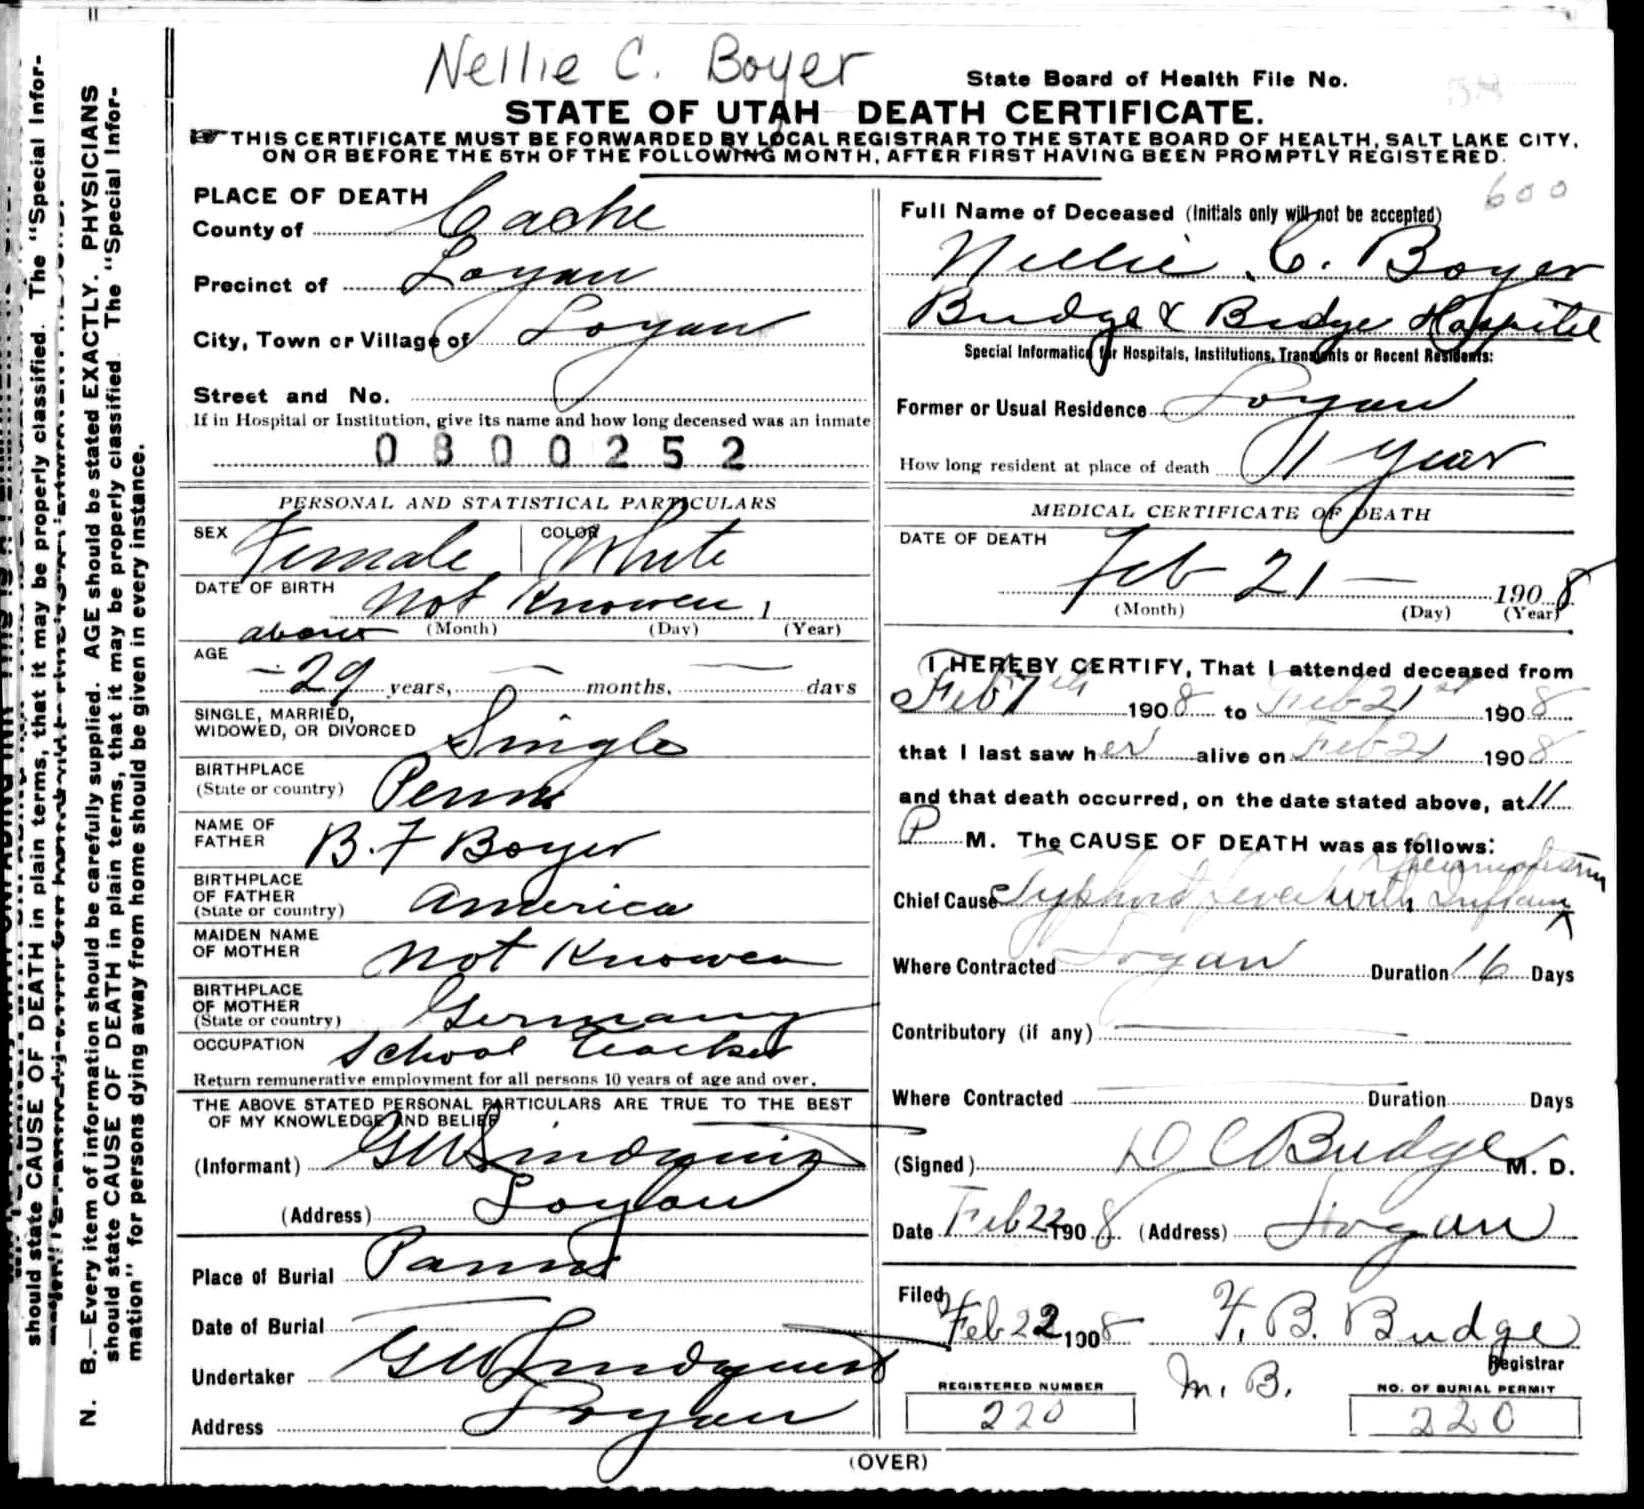 Nellie C. Boyer
State Board of Health File No.
STATE OF UTAH DEATH CERTIFICATE.
THIS CERTIFICATE MUST BE FORWARDED BY LOCAL REGISTRAR TO THE STATE BOARD OF HEALTH, SALT LAKE CITY,
ON OR BEFORE THE 5TH OF THE FOLLOWING MONTH, AFTER FIRST HAVING BEEN PROMPTLY REGISTERED.
600
PLACE OF DEATH
County of Cache
Precinct of Logan
City, Town or Village of Logan
Street and No.
If in Hospital or Institution, give its name and how long deceased was an inmate
0800252
PERSONAL AND STATISTICAL PARTICULARS
SEX Female COLOR White
DATE OF BIRTH Not Knowen 1
(Month) (Day) (Year)
AGE about 29 years, months, days
SINGLE, MARRIED,
WIDOWED, OR DIVORCED Single
BIRTHPLACE
(State or country) Penn
NAME OF
FATHER B. F Boyer
BIRTHPLACE
OF FATHER
(State or country) America
MAIDEN NAME
OF MOTHER Not Knowen
BIRTHPLACE
OF MOTHER
(State or country) Germany
OCCUPATION School Teacher
Return remunerative employment for all persons 10 years of age and over.
THE ABOVE STATED PERSONAL PARTICULARS ARE TRUE TO THE BEST
OF MY KNOWLEDGE AND BELIEF
(Informant) G W Lindquist
(Address) Logan
Place of Burial Panns
Date of Burial
Undertaker G W Lindquist
Address Logan
Full Name of Deceased (Initials only will not be accepted)
Nellie C. Boyer
Budge & Budge Hospital
Special Information for Hospitals, Institutions, Transients or Recent Residents:
Former or Usual Residence Logan
How long resident at place of death 1 year
MEDICAL CERTIFICATE OF DEATH
DATE OF DEATH
Feb 21 1908
(Month) (Day) (Year)
I HEREBY CERTIFY, That I attended deceased from
Feb 7th 1908 to Feb 21st 1908
that I last saw her alive on Feb 21 1908
and that death occurred, on the date stated above, at 11
P M. The CAUSE OF DEATH was as follows:
Chief Cause Typhoid fever with Inflam Rheumatism
Where Contracted Logan Duration 16 Days
Contributory (if any)
Where Contracted Duration Days
(Signed) D C Budge M. D.
Date Feb 22 1908 (Address) Logan
Filed
Feb 22 1908 F. B. Budge
Registrar
M. B.
REGISTERED NUMBER
220
NO. OF BURIAL PERMIT
220
(OVER)
N. B.—Every item of information should be carefully supplied. AGE should be stated EXACTLY. PHYSICIANS
should state CAUSE OF DEATH in plain terms, that it may be properly classified. The "Special Infor-
mation" for persons dying away from home should be given in every instance.
should state CAUSE OF DEATH in plain terms, that it may be properly classified. The "Special Infor-